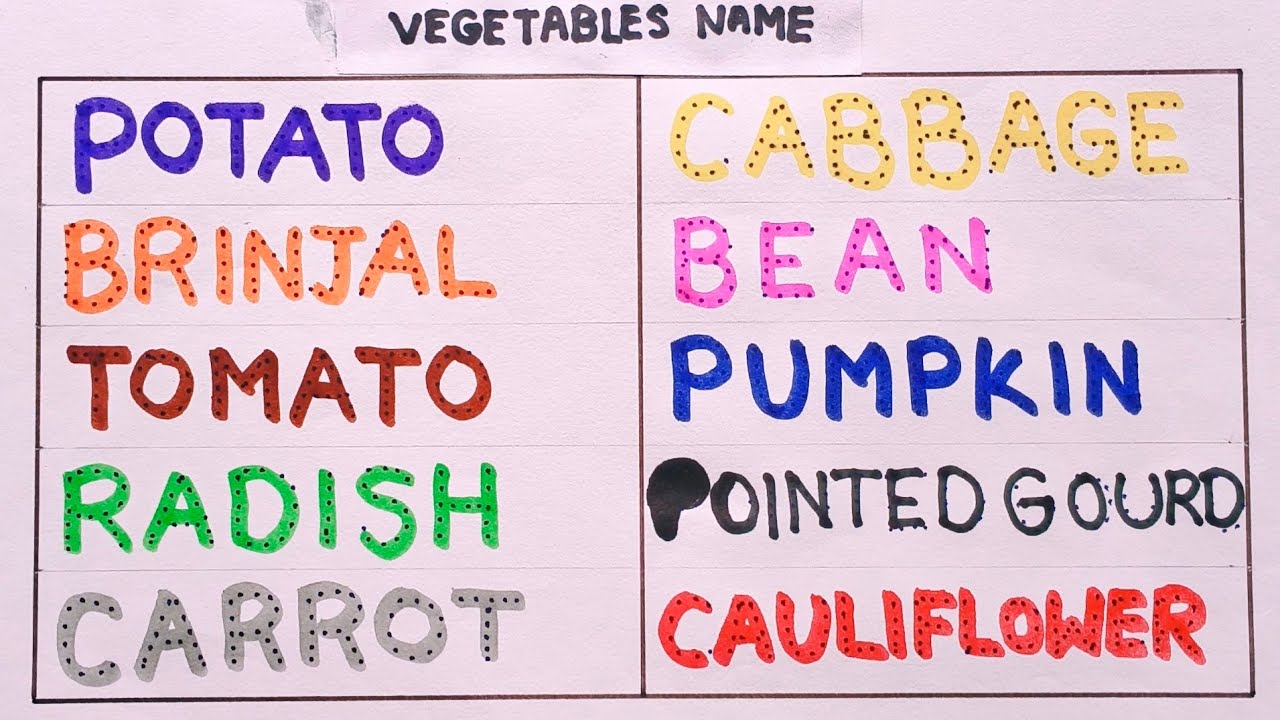 VEGETABLES NAME
POTATO
BRINJAL
TOMATO
RADISH
CARROT
CABBAGE
BEAN
PUMPKIN
POINTED GOURD
CAULIFLOWER